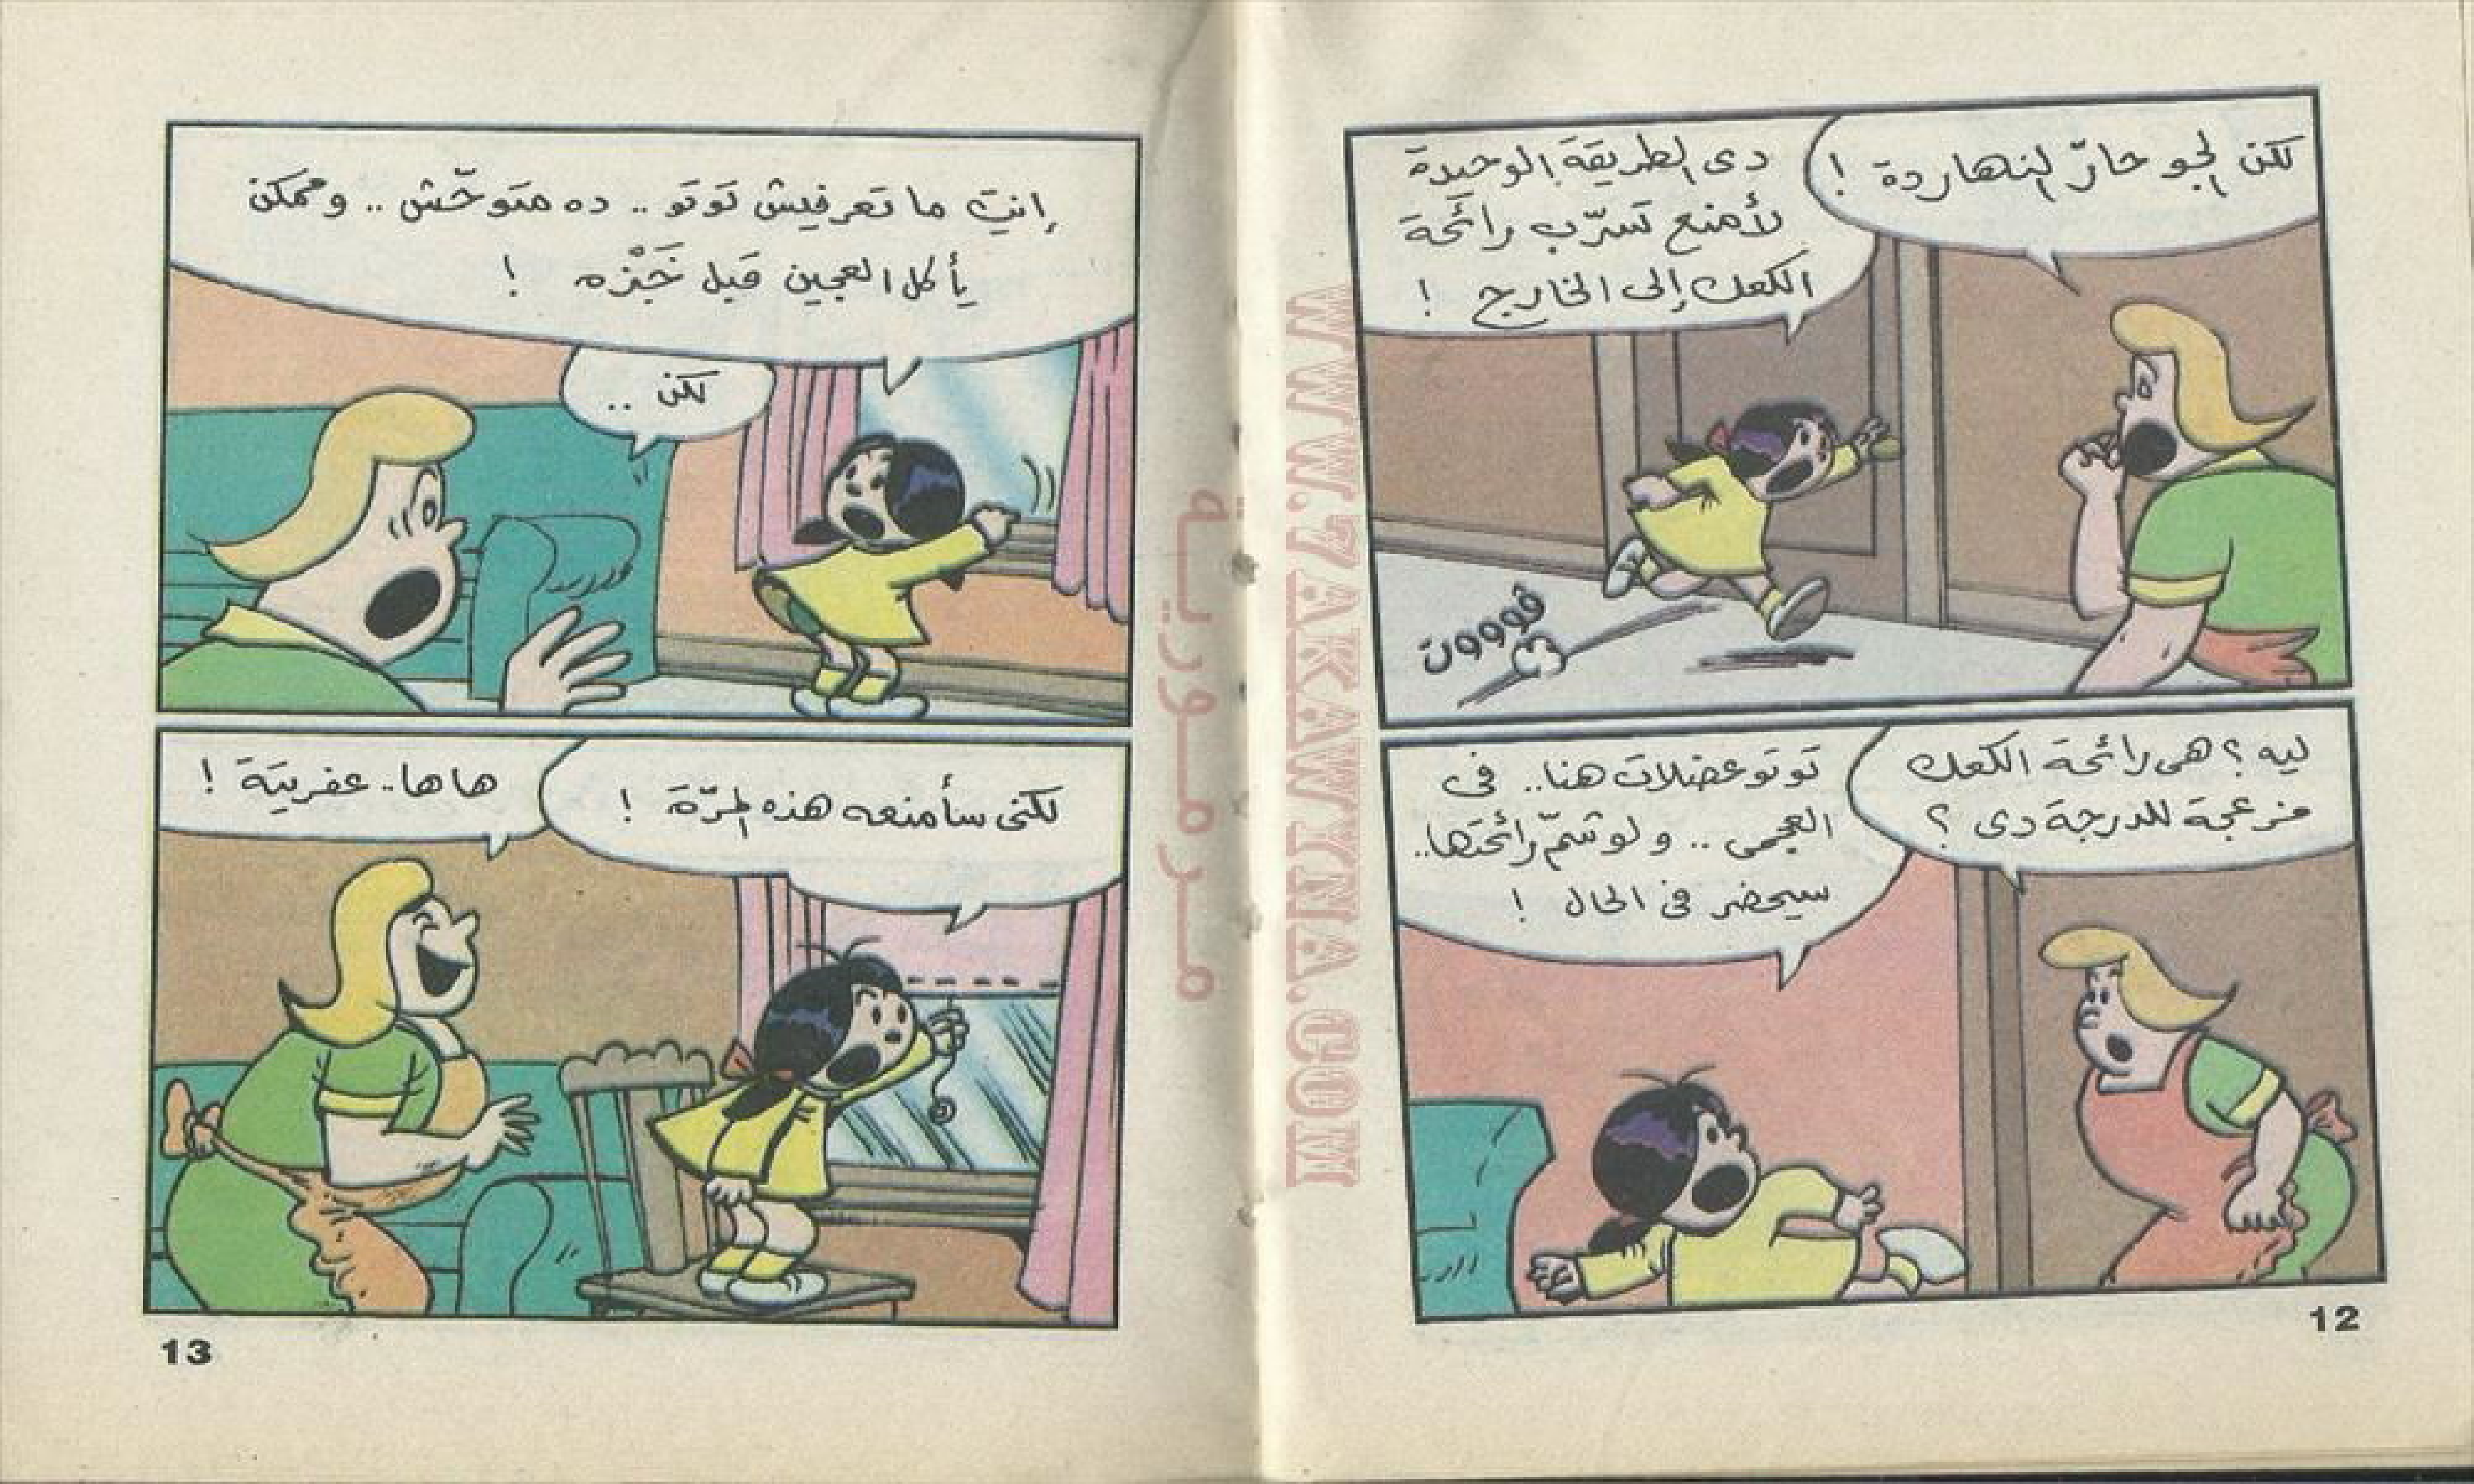 لكن الجو حارّ النهاردة !
دى الطريقة الوحيدة
لأمنع تسرّب رائحة
الكعك إلى الخارج !
فوووت
ليه ؟ هى رائحة الكعك
مزعجة للدرجة دى ؟
توتو عضلات هنا.. فى
العجمى .. ولو شمّ رائحتها..
سيحضر فى الحال !
12
إنتِ ما تعرفيش توتو .. ده متوحّش .. وممكن
يأكل العجين قبل خَبْزه !
لكن ..
لكنى سأمنعه هذه المرّة !
ها ها.. عفريتة !
13
مرمورية
WWW.7AKAWINA.COM